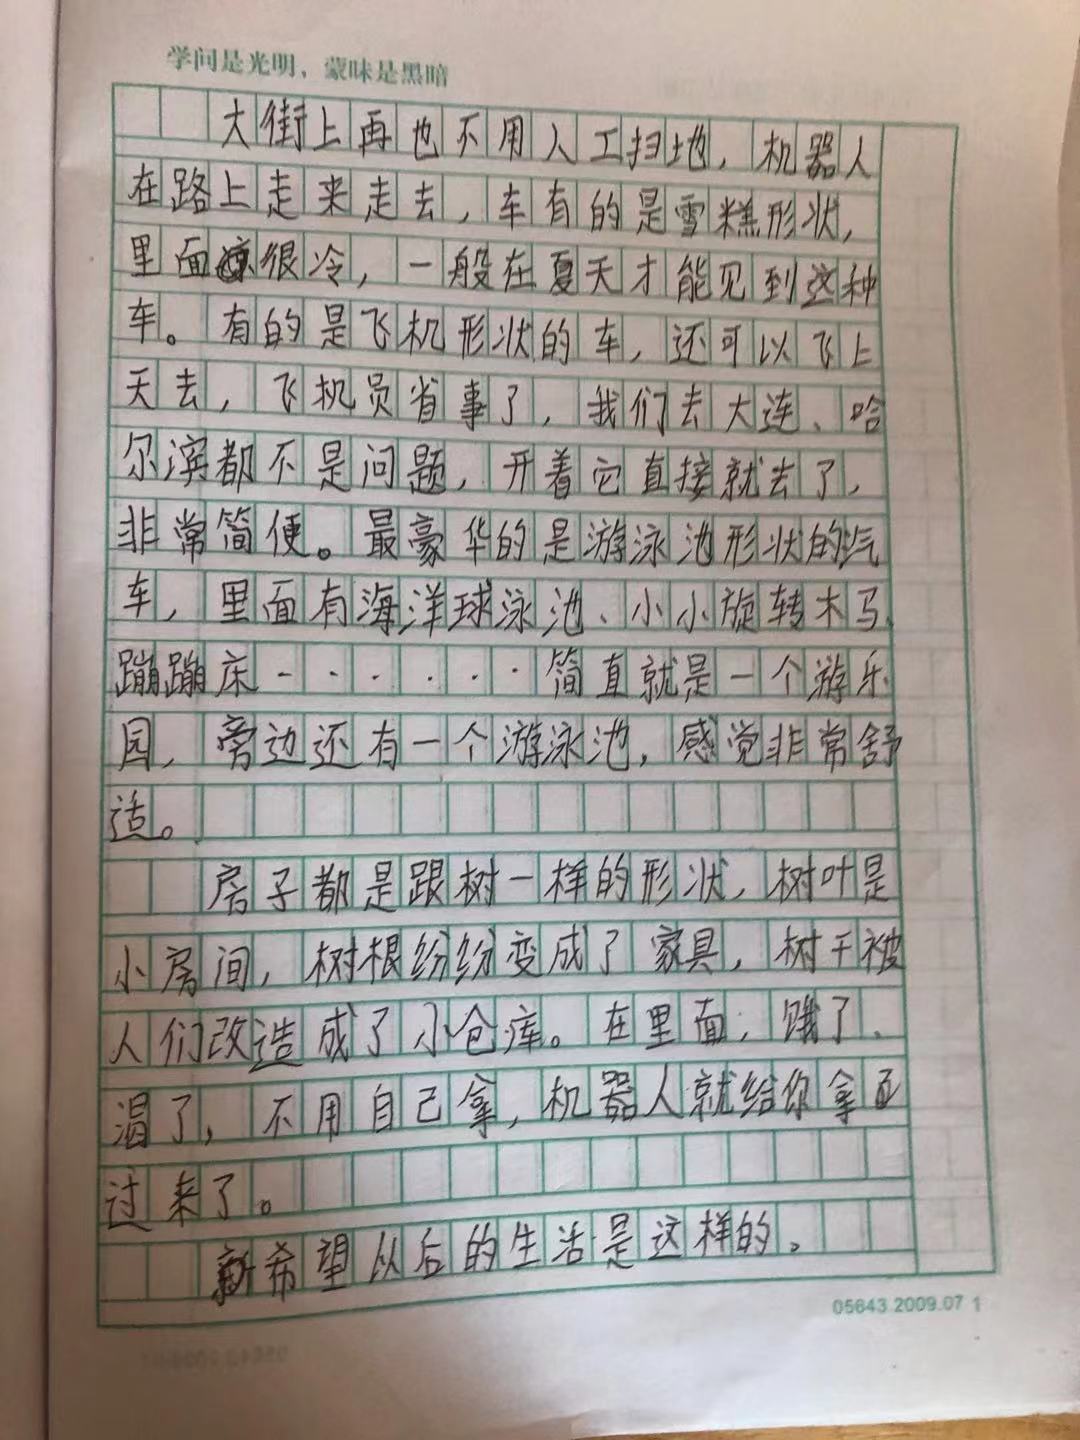 学问是光明，蒙昧是黑暗
大街上再也不用人工扫地，机器人
在路上走来走去，车有的是雪糕形状，
里面很冷，一般在夏天才能见到这种
车。有的是飞机形状的车，还可以飞上
天去，飞机员省事了，我们去大连、哈
尔滨都不是问题，开着它直接就去了，
非常简便。最豪华的是游泳池形状的汽
车，里面有海洋球泳池、小小旋转木马、
蹦蹦床······简直就是一个游乐
园，旁边还有一个游泳池，感觉非常舒
适。
房子都是跟树一样的形状，树叶是
小房间，树根纷纷变成了家具，树干被
人们改造成了小仓库。在里面，饿了、
渴了，不用自己拿，机器人就给你拿
过来了。
希望以后的生活是这样的。
05643.2009.07 1